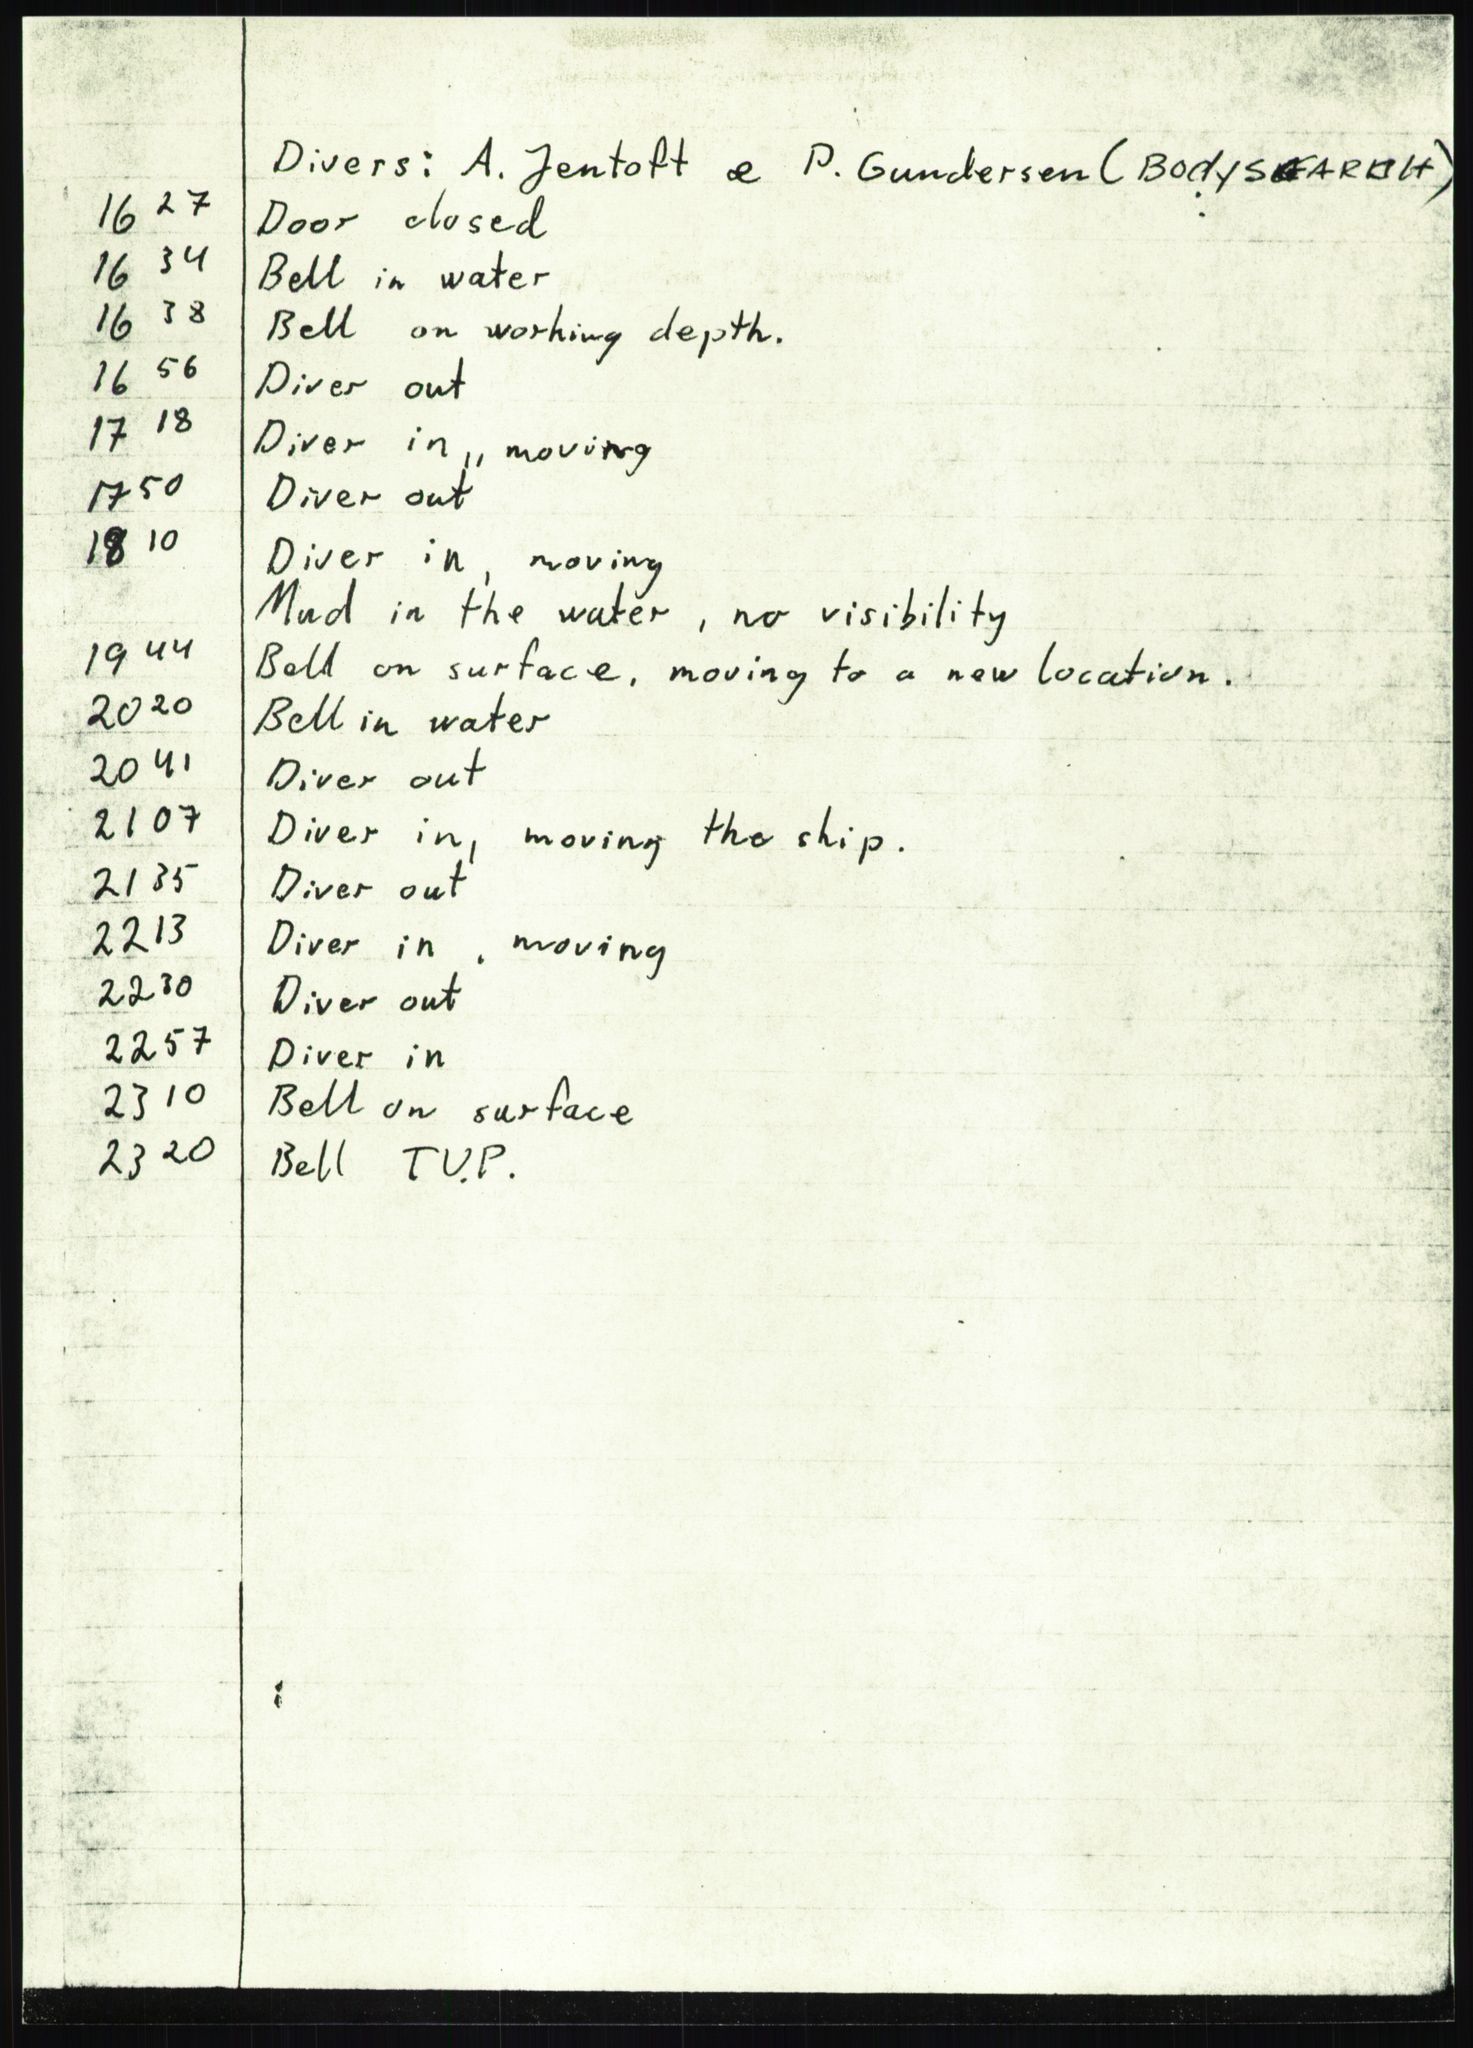 Divers: A. Jentoft & P. Gundersen (BODYSEARCH)
16 27 Door closed
16 34 Bell in water
16 38 Bell on working depth.
16 56 Diver out
17 18 Diver in,, moving
17 50 Diver out
18 10 Diver in, moving
Mud in the water, no visibility
19 44 Bell on surface, moving to a new location.
20 20 Bell in water
20 41 Diver out
21 07 Diver in, moving the ship.
21 35 Diver out
22 13 Diver in, moving
22 30 Diver out
22 57 Diver in
23 10 Bell on surface
23 20 Bell T.U.P.